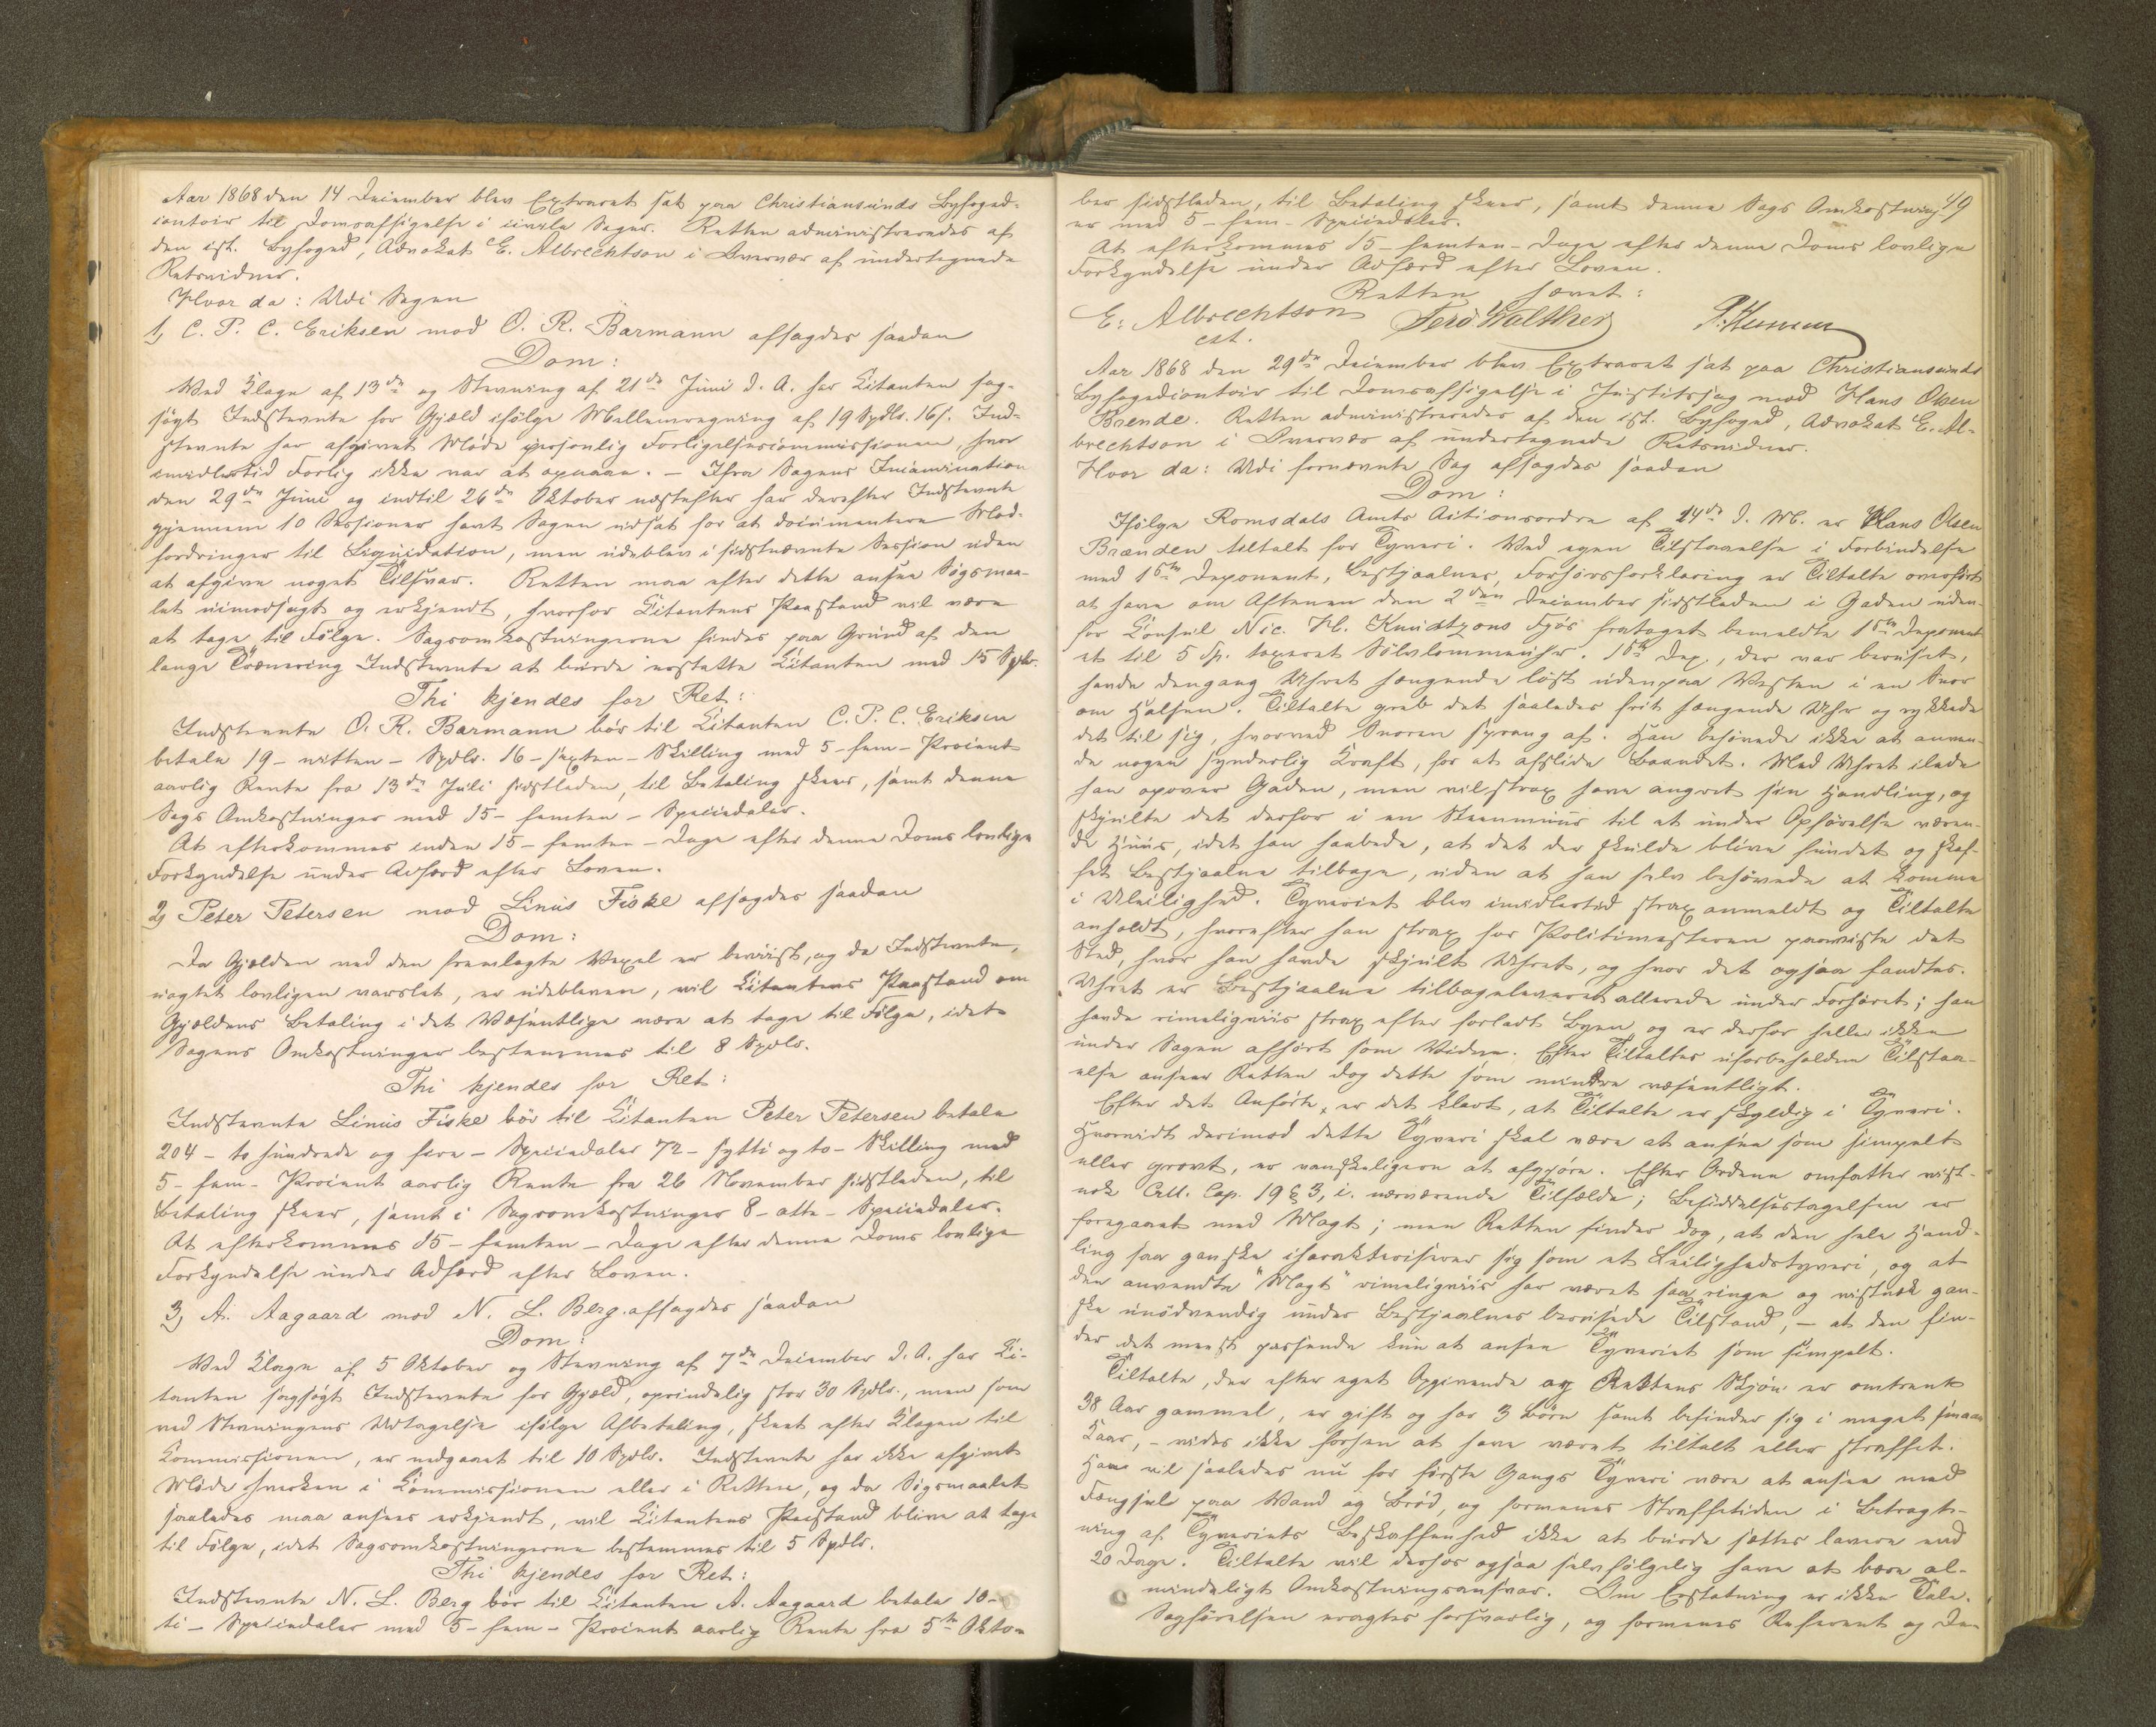 Aar 1868 den 14 December blev Extraret sat paa Christiansunds Byfoged-
contoir til Domsafsigelse i civile Sager. Retten administreredes af
den cst. Byfoged, Advokat E. Albrechtson i Overvær af undertegnede
Retsvidner.
Hvor da: Udi Sagen
1, C. P. C. Eriksen mod O. R. Barmann afsagdes saadan
Dom:
Ved Klage af 13de og Stevning af 21de Juni d. A. har Citanten sag-
søgt Indstevnte for Gjæld ifølge Mellemregning af 19 Spdlr. 16 s. Ind-
stevnte har afgivet Møde personlig Forligelsescommissionen, hvor
imidlertid Forlig ikke var at opnaae. - Ifra Sagens Incamination
den 29de Juni og indtil 26de Oktober næstefter har derefter Indstevnte
gjennem 10 Sessioner havt Sagen udsat for at documentere Mod-
fordringer til Liquidation, men udeblev i sidstnævnte Session uden
at afgive noget Tilsvar. Retten maa efter dette ansee Søgsmaa-
let uimodsagt og erkjendt, hvorfor Citantens Paastand vil være
at tage til Følge. Sagsomkostningerne findes paa Grund af den
lange Trænering Indstevnte at burde erstatte Citanten med 15 Spdlr.
Thi kjendes for Ret:
Indstevnte O. R. Barmann bør til Citanten C. P. C. Eriksen
betale 19 - nitten - Spdlr. 16 - sexten - Skilling med 5 - fem - Procent
aarlig Rente fra 13de Juli sidstleden, til Betaling skeer, samt denne
Sags Omkostninger med 15 - femten - Speciedaler.
At efterkommes inden 15 - femten - Dage efter denne Doms lovlige
Forkyndelse under Adfærd efter Loven.
2, Peter Petersen mod Linus Fiske afsagdes saadan
Dom:
Da Gjælden ved den fremlagte Vexel er beviist, og da Indstevnte,
uagtet lovligen varslet, er udebleven, vil Citantens Paastand om
Gjældens Betaling i det Væsentlige være at tage til Følge, idet
Sagens Omkostninger bestemmes til 8 Spdlr.
Thi kjendes for Ret:
Indstevnte Linus Fiske bør til Citanten Peter Petersen betale
204 - to hundrede og fire - Speciedaler 72 - sytti og to - Skilling med
5 - fem - Procent aarlig Rente fra 26 November sidstleden, til
Betaling skeer, samt i Sagsomkostninger 8 - otte - Speciedaler.
At efterkommes 15 - femten - Dage efter denne Doms lovlige
Forkyndelse under Adfærd efter Loven.
3, A. Aagaard mod N. L. Berg afsagdes saadan
Dom:
Ved Klage af 5 Oktober og Stevning af 7de December d. A. har Ci-
tanten sagsøgt Indstevnte for Gjæld, oprindelig stor 30 Spdlr., men som
ved Stevningens Udtagelse ifølge Afbetaling, skeet efter Klagen til
Commissionen, er nedgaaet til 10 Spdlr. Indstevnte har ikke afgivet
Møde hverken i Commissionen eller i Retten, og da Søgsmaalet
saaledes maa ansees erkjendt, vil Citantens Paastand blive at tage
til Følge, idet Sagsomkostningerne bestemmes til 5 Spdlr.
Thi kjendes for Ret:
Indstevnte N. L. Berg bør til Citanten A. Aagaard betale 10 -
ti - Speciedaler med 5 - fem - Procent aarlig Rente fra 5te Okto-
49
ber sidstleden, til Betaling skeer, samt denne Sags Omkostning-
er med 5 - fem - Speciedaler.
At efterkommes 15 - femten - Dage efter denne Doms lovlige
Forkyndelse under Adfærd efter Loven.
Retten hævet:
E. Albrechtson Ferd Walther
cst.
Aar 1868 den 29de December blev Extraret sat paa Christiansunds
Byfogedcontoir til Domsafsigelse i Justitssag mod Hans Olsen
Brende. Retten administreredes af den cst. Byfoged, Advokat E. Al-
brechtson i Overvær af undertegnede Retsvidner.
Hvor da: Udi fornævnte Sag afsagdes saadan
Dom:
Ifølge Romsdals Amts Actionsordre af 14de d. M. er Hans Olsen
Brænden tiltalt for Tyveri. Ved egen Tilstaaelse i Forbindelse
med 1ste Deponent, Bestjaalnes, Forhørsforklaring er Tiltalte overført
at have om Aftenen den 2den December sidstleden i Gaden uden-
for Consul Nic. H. Knudtzons Gaard frataget bemeldte 1ste Deponent
et til 5 Sp. taxeret Sølvlommeuhr. 1ste Dep., der var beruset,
havde dengang Uhret hængende løst udenpaa Vesten i en Snor
om Halsen. Tiltalte greb det saaledes frit hængende Uhr og rykkede
det til sig, hvorved Snoren sprang af. Han behøvede ikke at anven-
de nogen synderlig Kraft, for at afslide Baandet. Med Uhret ilede
han opover Gaden, men vil strax have angret sin Handling, og
skjulte det derfor i en Steenmuur til et under Opførelse væren-
de Huus, idet han haabede, at det der skulde blive fundet og skaf-
fet Bestjaalne tilbage, uden at han selv behøvede at komme
i Uleilighed. Tyveriet blev imidlertid strax anmeldt og Tiltalte
anholdt, hvorefter han strax for Politimesteren paaviste det
Sted, hvor han havde skjult Uhret, og hvor det ogsaa fandtes.
Uhret er Bestjaalne tilbageleveret allerede under Forhøret; han
havde rimeligviis strax efter forladt Byen og er derfor heller ikke
under Sagen afhørt som Vidne. Efter Tiltaltes uforbeholdne Tilstaa-
else anseer Retten dog dette som mindre væsentligt.
Efter det Anførte, er det klart, at Tiltalte er skyldig i Tyveri.
Hvorvidt derimod dette Tyveri skal være at ansee som simpelt
eller grovt, er vanskeligere at afgjøre. Efter Ordene omfatter vist-
nok Crll. Cap. 19 § 3, i. nærværende Tilfælde; Besiddelsestagelsen er
foregaaet med Magt; men Retten finder dog, at den hele Hand-
ling saa ganske charakteriserer sig som et Leilighedstyveri, og at
den anvendte "Magt" rimeligviis har været saa ringe og vistnok gan-
ske unødvendig under Bestjaalnes berusede Tilstand, - at den fin-
der det meest passende kun at ansee Tyveriet som simpelt.
Tiltalte, der efter eget Opgivende og Rettens Skjøn er omtrent
38 Aar gammel, er gift og har 3 Børn samt befinder sig i meget smaae
Kaar, - vides ikke forhen at have været tiltalt eller straffet.
Han vil saaledes nu for første Gangs Tyveri være at ansee med
Fængsel paa Vand og Brød, og formenes Straffetiden i Betragt-
ning af Tyveriets Beskaffenhed ikke at burde sættes lavere end
20 Dage. Tiltalte vil derhos ogsaa selvfølgelig have at bære al-
mindeligt Omkostningsansvar. Om Erstatning er ikke Tale.
Sagførelsen eragtes forsvarlig, og formenes Referent og De-